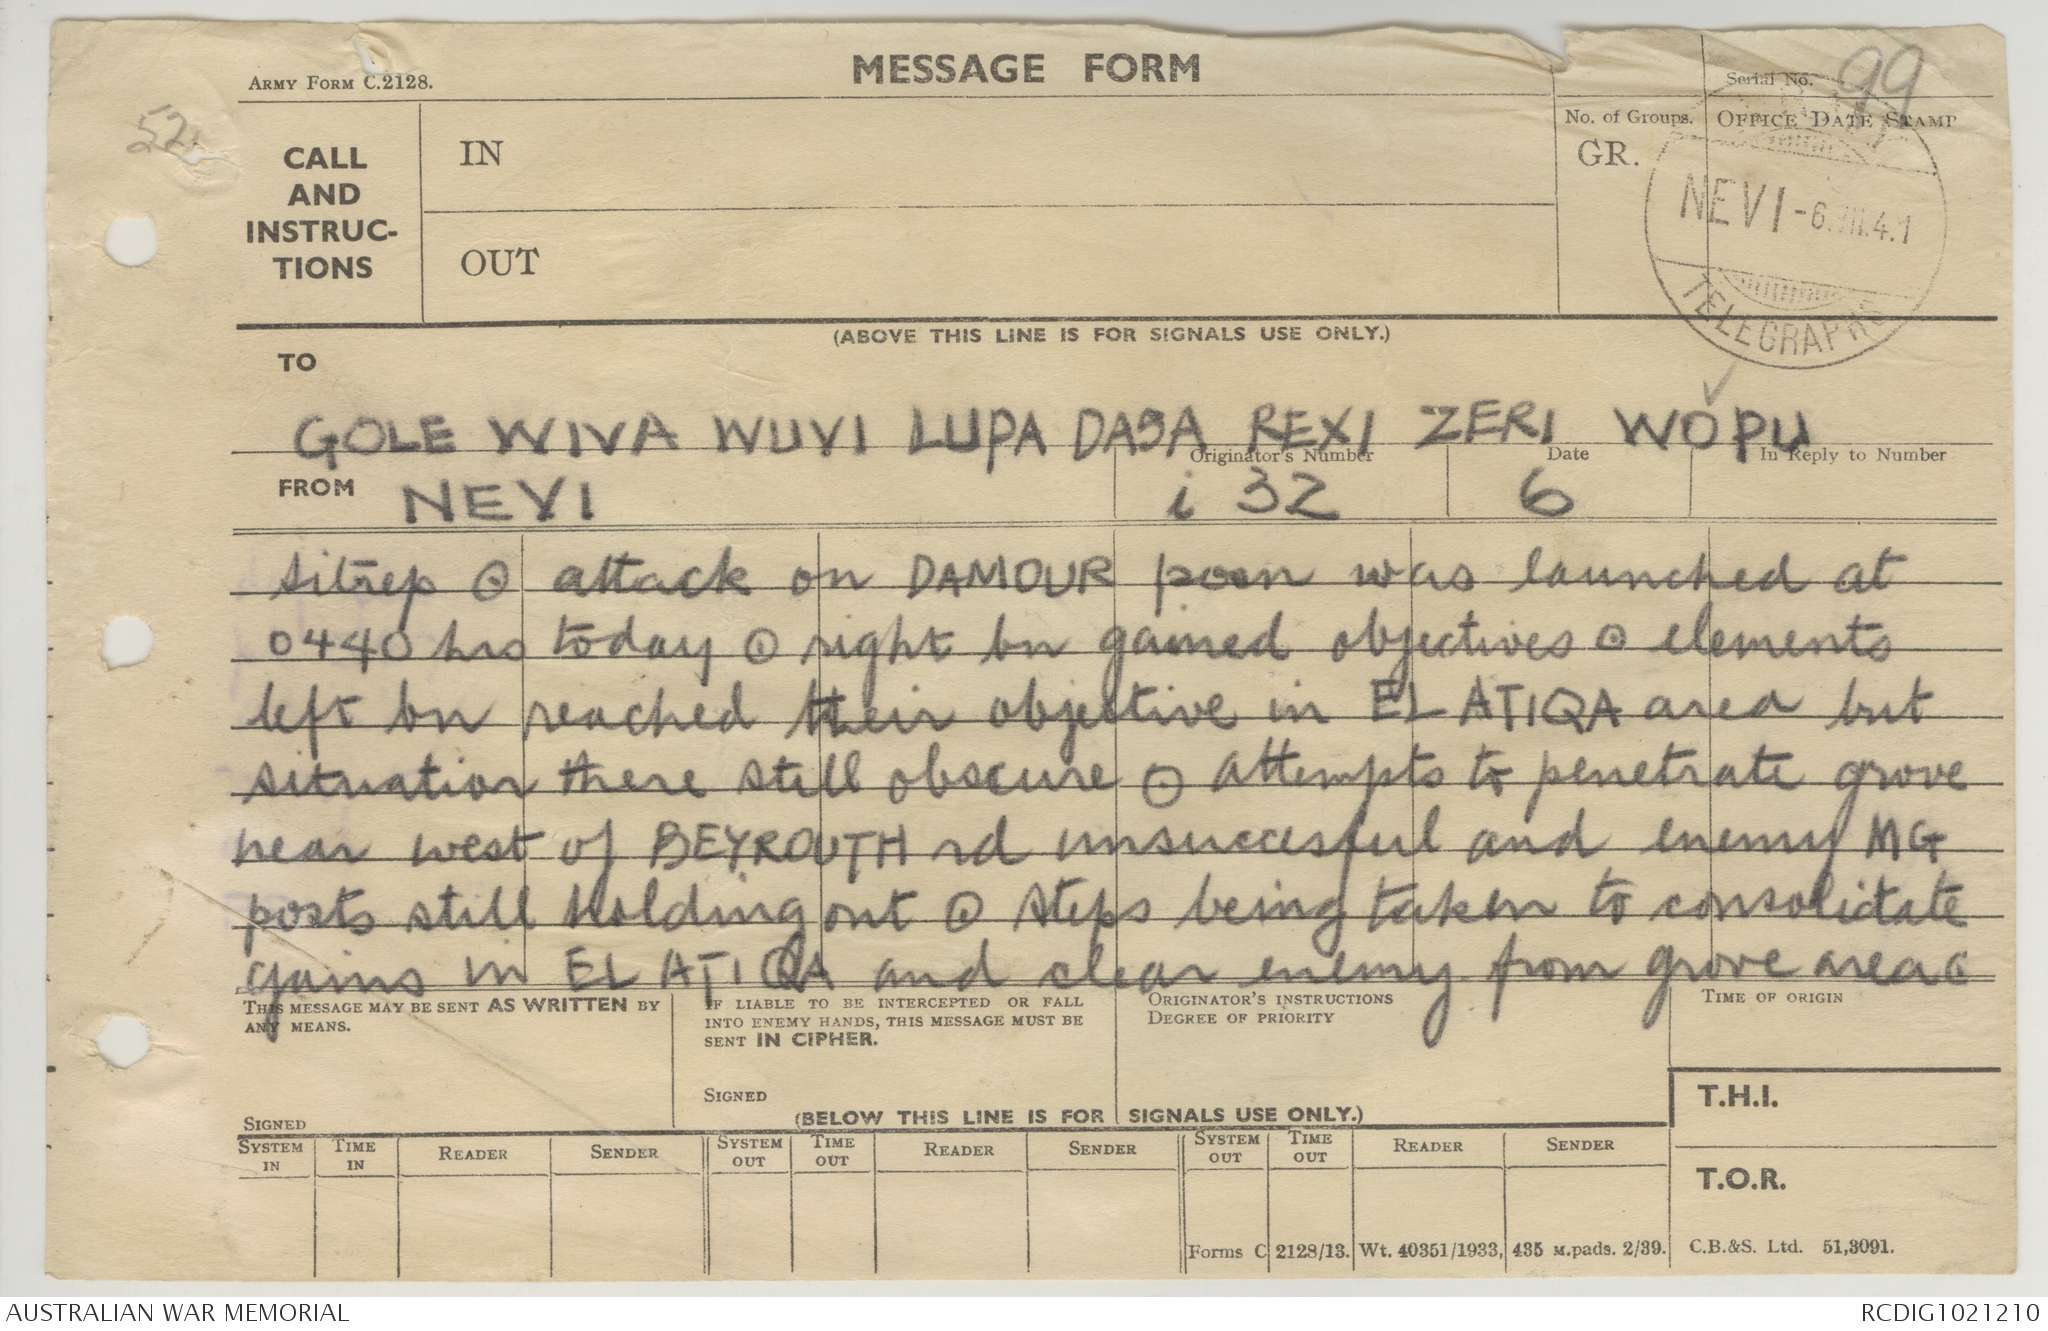 MESSAGE FORM
ARMY FORM C.2128.
Serial No. 99
52
CALL
AND
INSTRUC-
TIONS
IN
OUT
No. of Groups.
GR.
OFFICE DATE STAMP
NEVI -6.VII.4.1
TELEGRAPHS
(ABOVE THIS LINE IS FOR SIGNALS USE ONLY.)
TO
GOLE WIVA WUVI LUPA DASA REXI ZERI WOPU
FROM NEVI
Originator's Number i 32
Date 6
In Reply to Number
sitrep ⊙ attack on DAMOUR posn was launched at
0440 hrs today ⊙ right bn gained objectives ⊙ elements
left bn reached their objective in EL ATIQA area but
situation there still obscure ⊙ attempts to penetrate grove
near west of BEYROUTH rd unsuccesful and enemy MG
posts still holding out ⊙ steps being taken to consolidate
gains in EL ATIQA and clear enemy from grove area
THIS MESSAGE MAY BE SENT AS WRITTEN BY
ANY MEANS.
SIGNED
IF LIABLE TO BE INTERCEPTED OR FALL
INTO ENEMY HANDS, THIS MESSAGE MUST BE
SENT IN CIPHER.
SIGNED
ORIGINATOR'S INSTRUCTIONS
DEGREE OF PRIORITY
TIME OF ORIGIN
T.H.I.
(BELOW THIS LINE IS FOR SIGNALS USE ONLY.)
SYSTEM IN TIME IN READER SENDER SYSTEM OUT TIME OUT READER SENDER SYSTEM OUT TIME OUT READER SENDER
T.O.R.
Forms C 2128/13. Wt. 40351/1933, 435 M.pads. 2/39. C.B.&S. Ltd. 51,3091.
AUSTRALIAN WAR MEMORIAL
RCDIG1021210